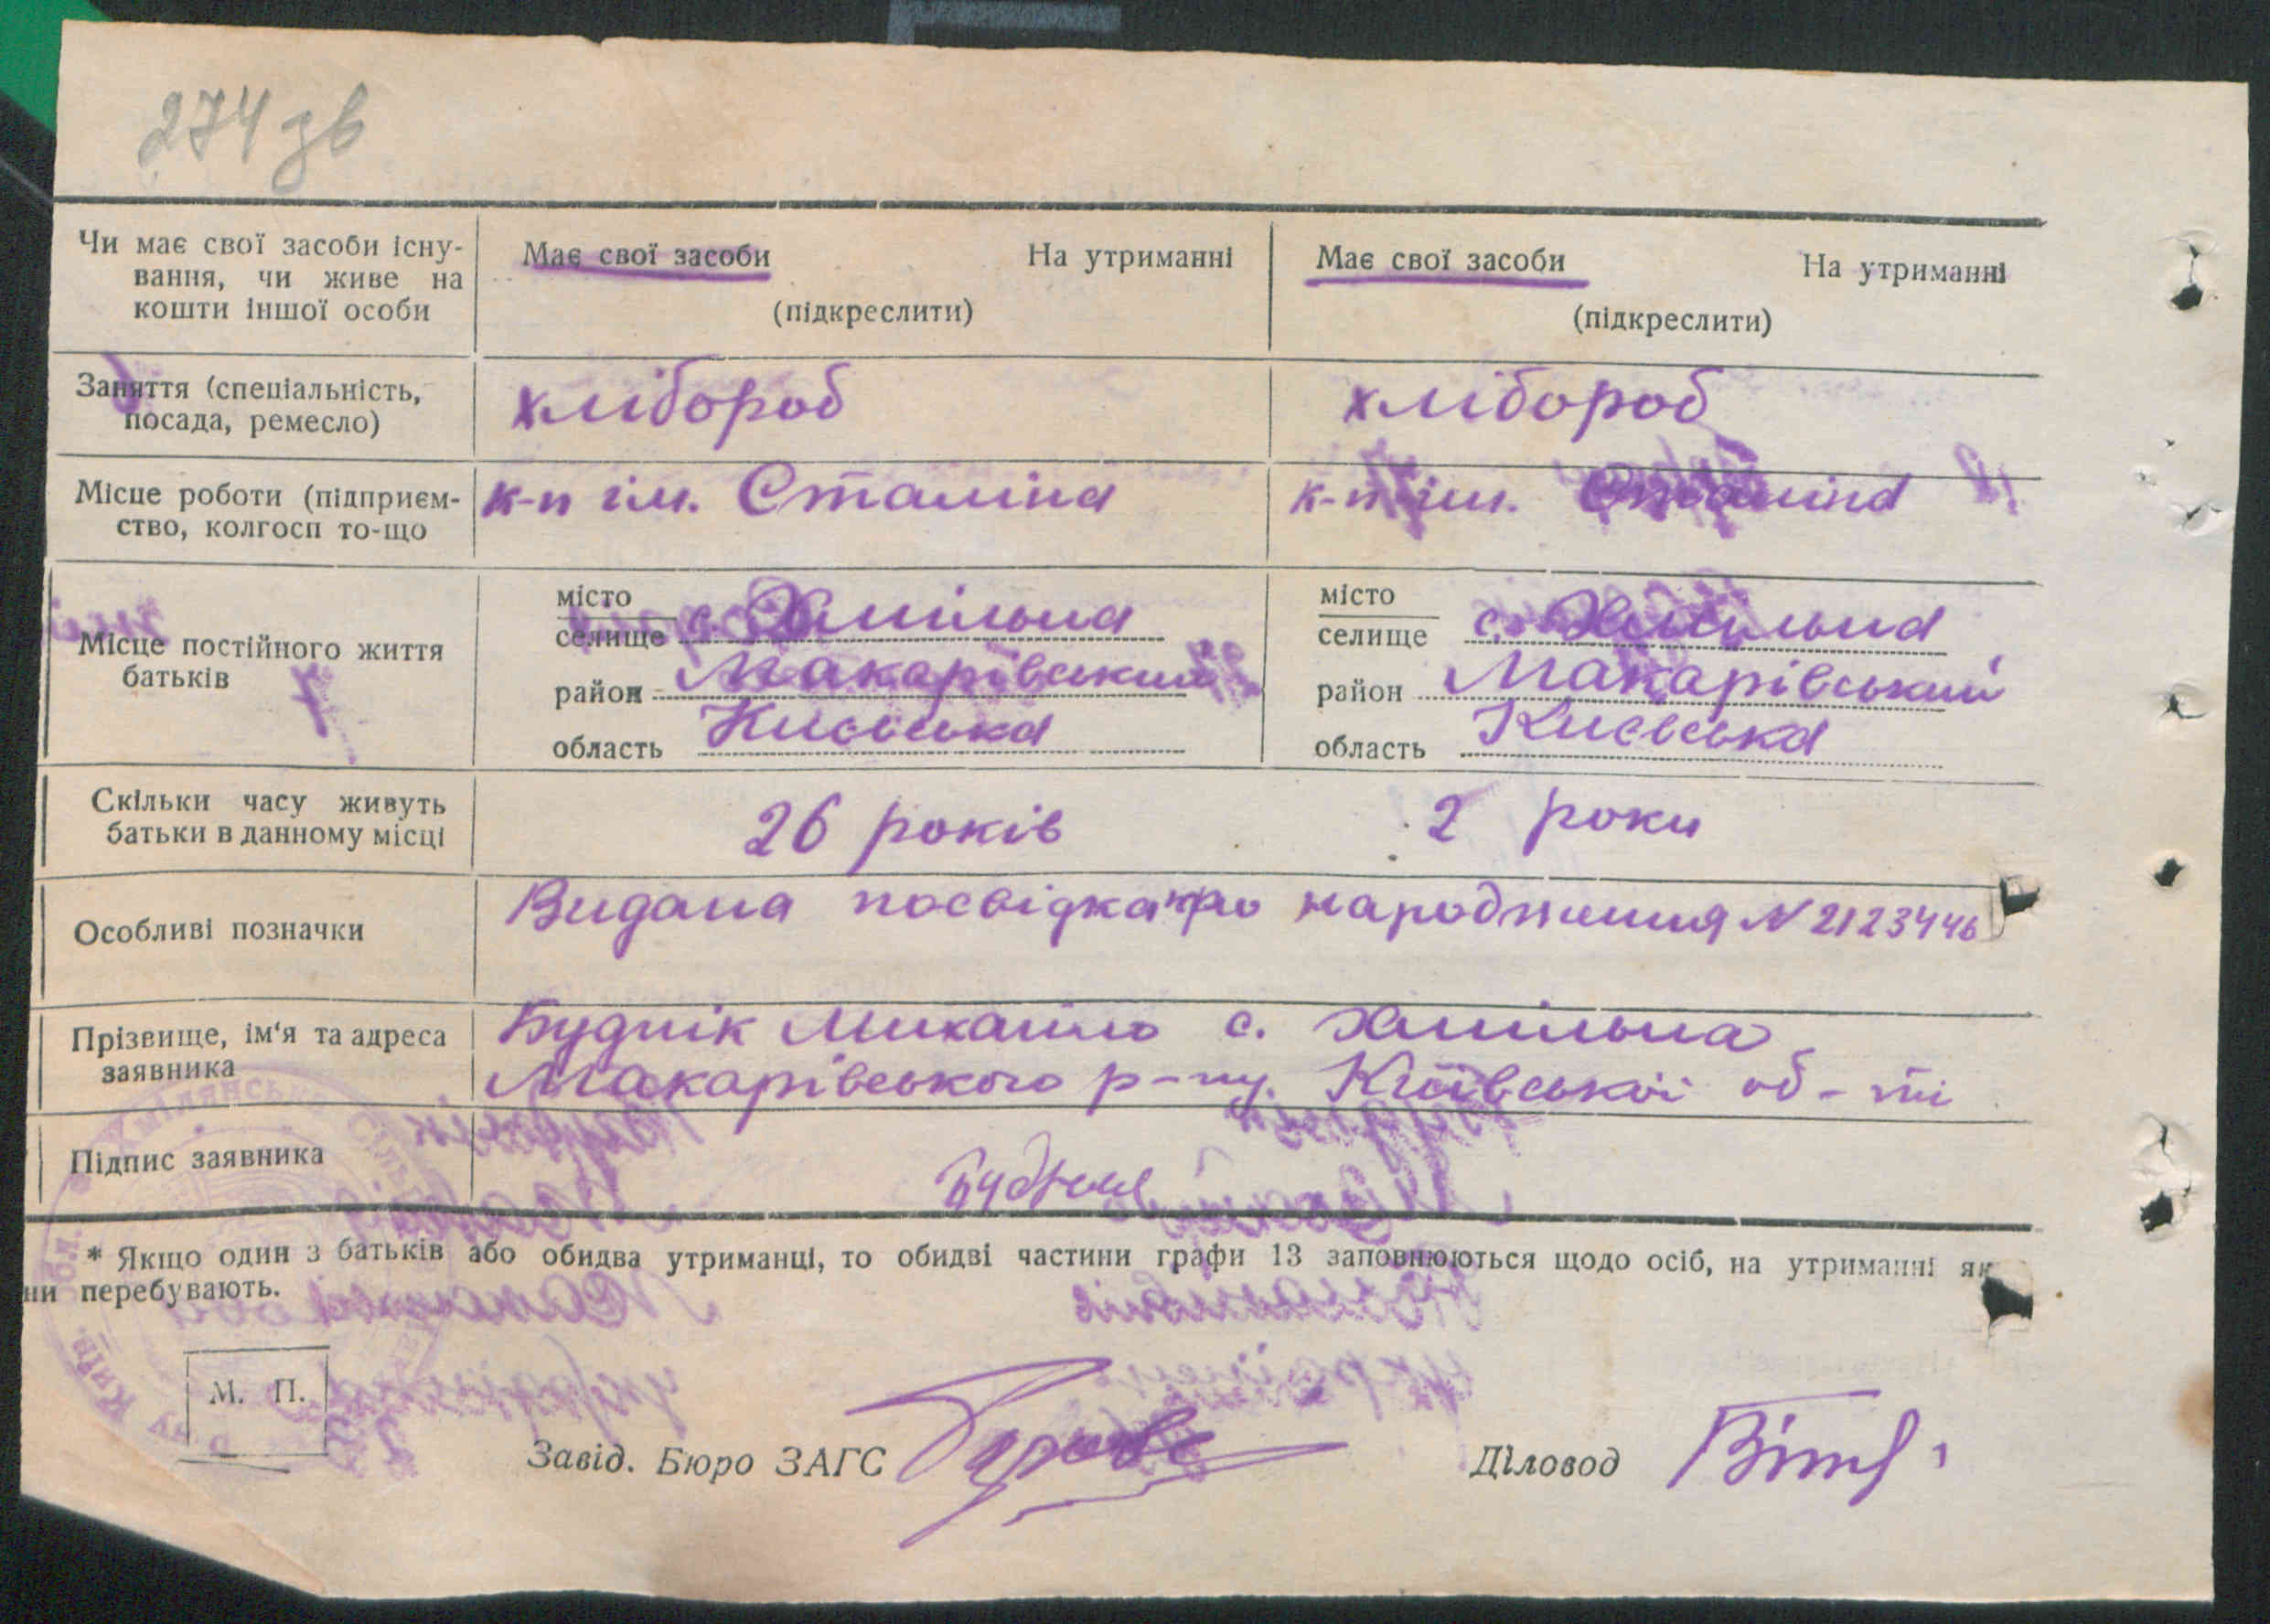 274 зв
Чи має свої засоби існу-
вання, чи живе на
кошти іншої особи
Має свої засоби На утриманні
(підкреслити)
Має свої засоби На утриманні
(підкреслити)
Заняття (спеціальність,
посада, ремесло)
хлібороб
хлібороб
Місце роботи (підприєм-
ство, колгосп то-що
к-п ім. Сталіна
к-п ім. Сталіна
Місце постійного життя
батьків
місто
селище с. Хмільна
район Макарівський
область Києвська
місто
селище с. Хмільна
район Макарівський
область Києвська
Скільки часу живуть
батьки в данному місці
26 років
2 роки
Особливі позначки
Видана посвідка про народження N 2123446
Прізвище, ім'я та адреса
заявника
Буднік Михайло с. Хмільна
Макарівського р-ну. Київської об-ті
Підпис заявника
* Якщо один з батьків або обидва утриманці, то обидві частини графи 13 заповнюються щодо осіб, на утриманні як
ни перебувають.
М. П.
Завід. Бюро ЗАГС
Діловод